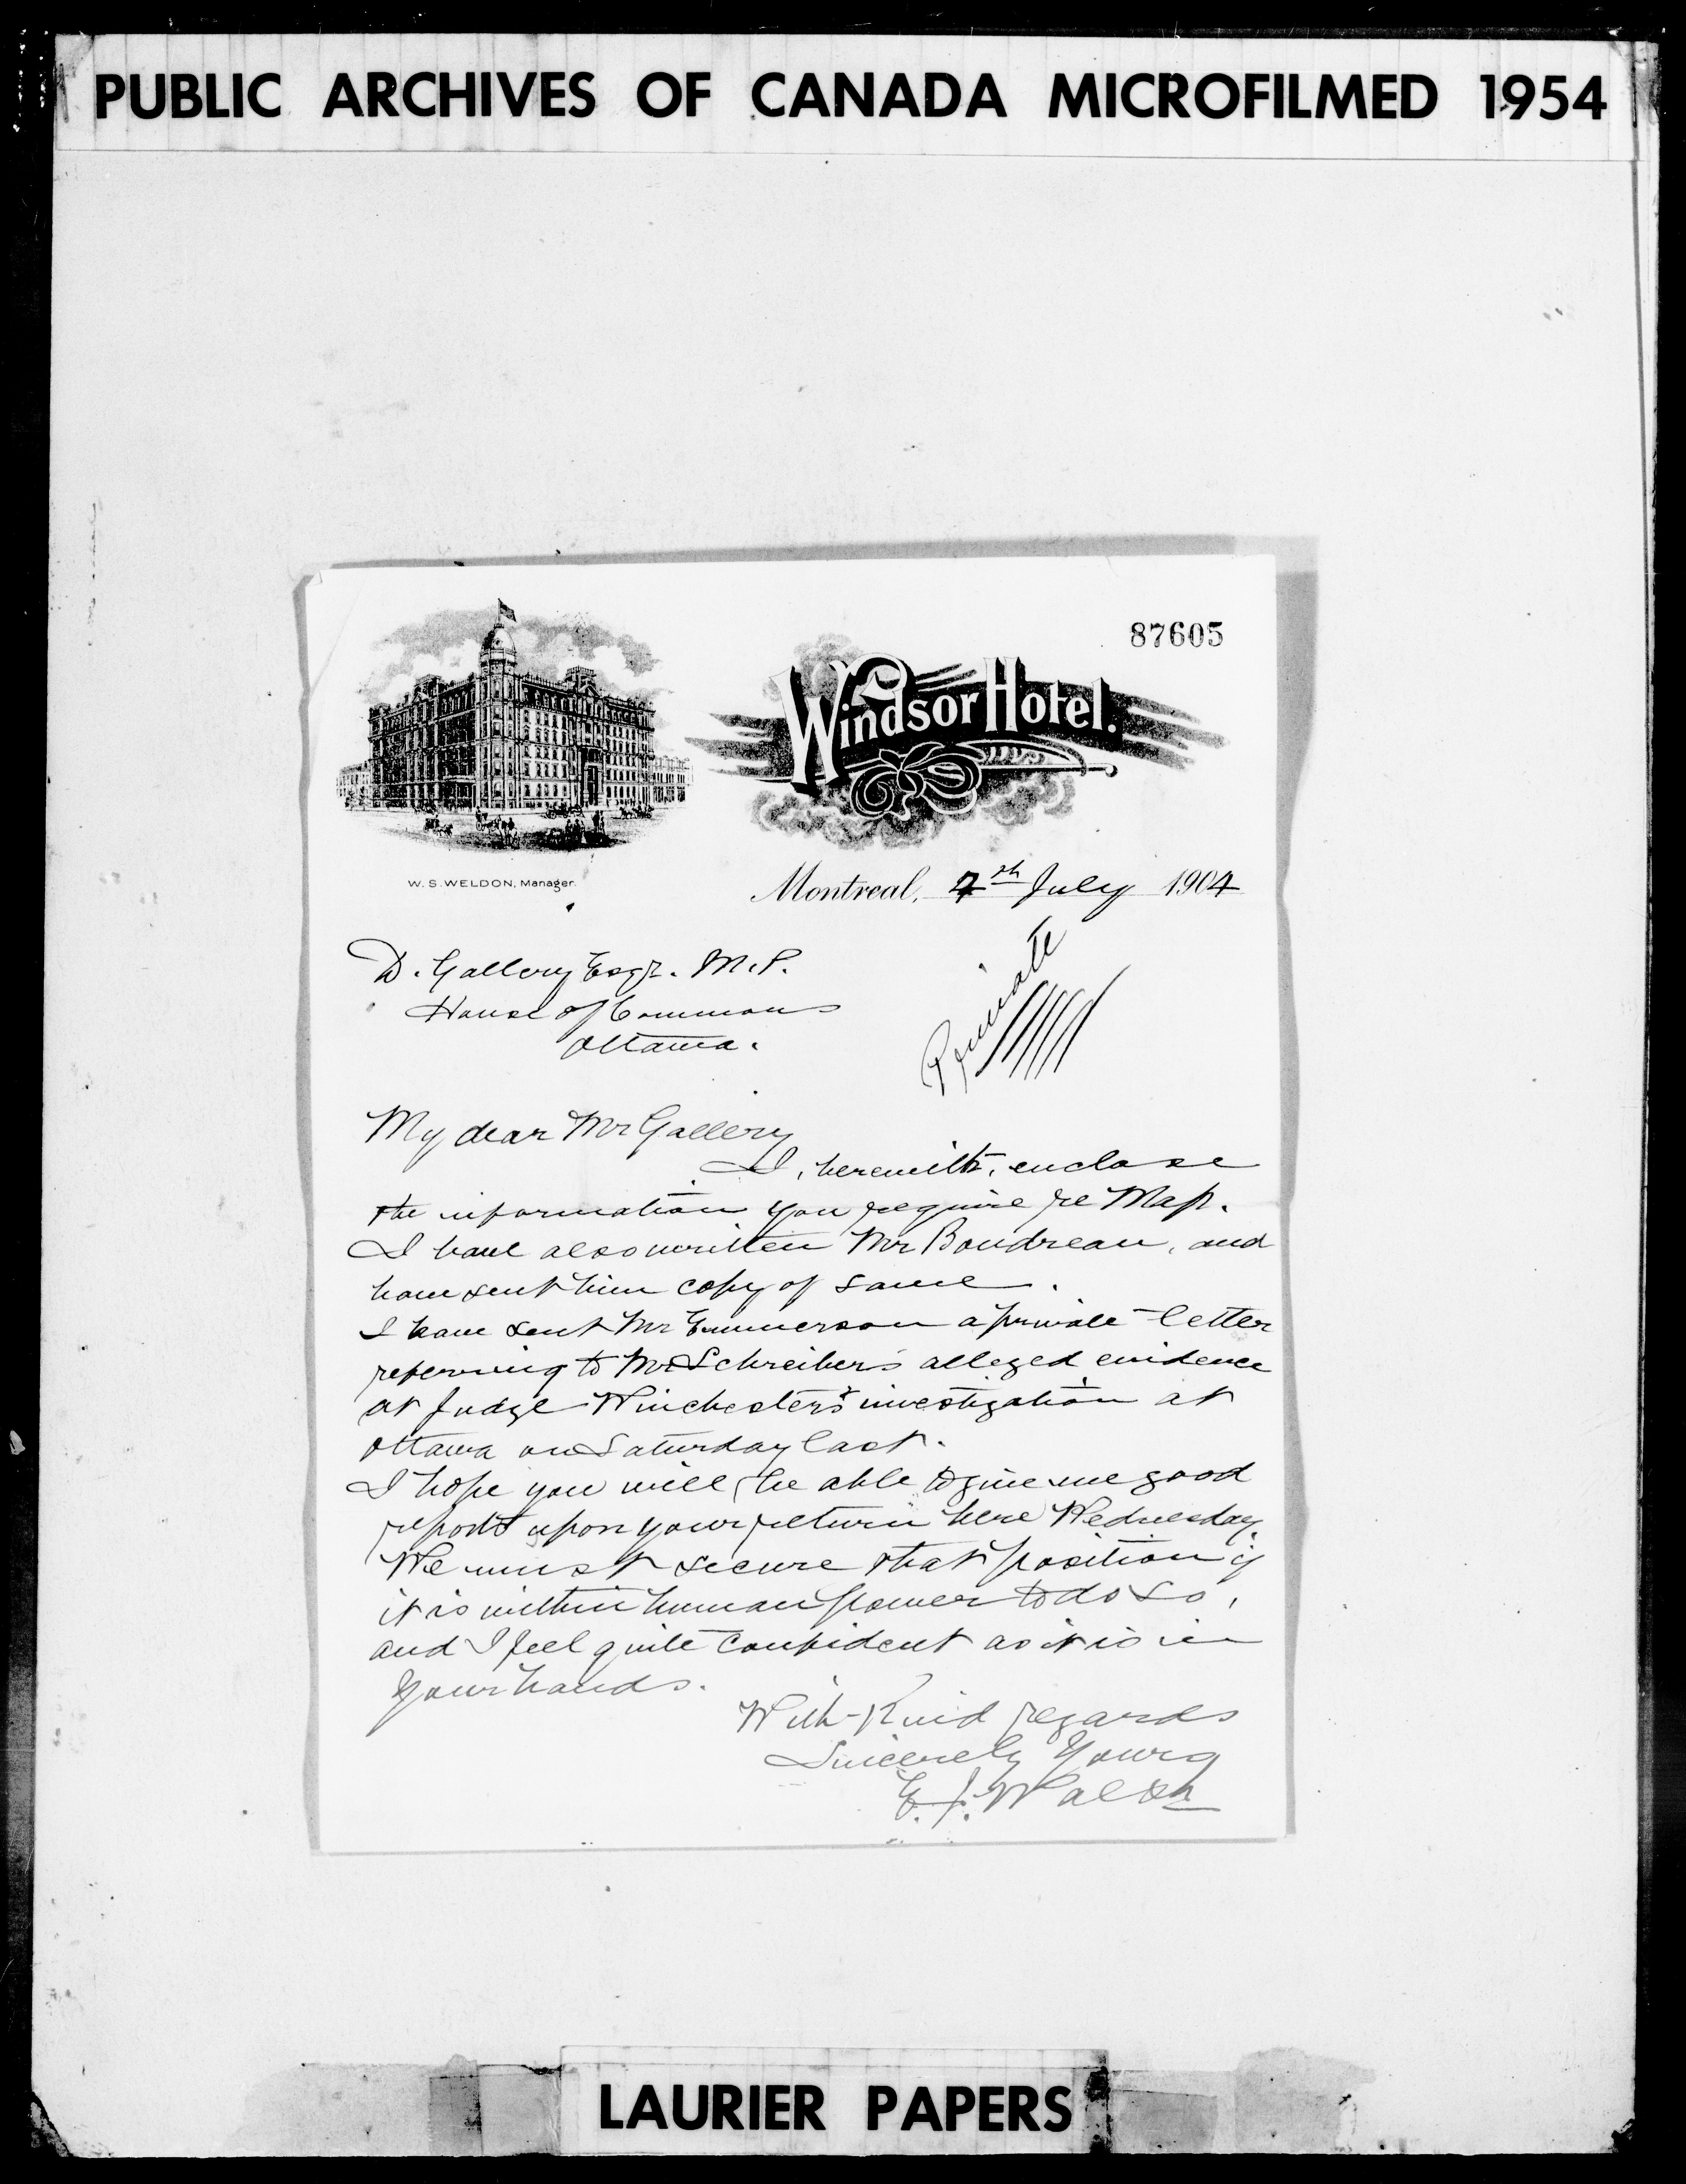 PUBLIC ARCHIVES OF CANADA MICROFILMED 1954
87605
Windsor Hotel.
W. S. WELDON, Manager.
Montreal, 4th July 1904
Private
D. Gallery Esqr. M.P.
House of Commons
Ottawa.
My dear Mr Gallery
I, herewith, enclose
the information you require re Map.
I have also written Mr Boudreau, and
have sent him copy of same.
I have sent Mr Emmerson a private letter
referring to Mr Schreiber's alleged evidence
at Judge Winchester's investigation at
Ottawa on Saturday last.
I hope you will be able to give me good
report upon your return here Wednesday.
We must secure that position if
it is within human power to do so,
and I feel quite confident as it is in
your hands.
With Kind regards
Sincerely Yours
E. J. Walsh
LAURIER PAPERS